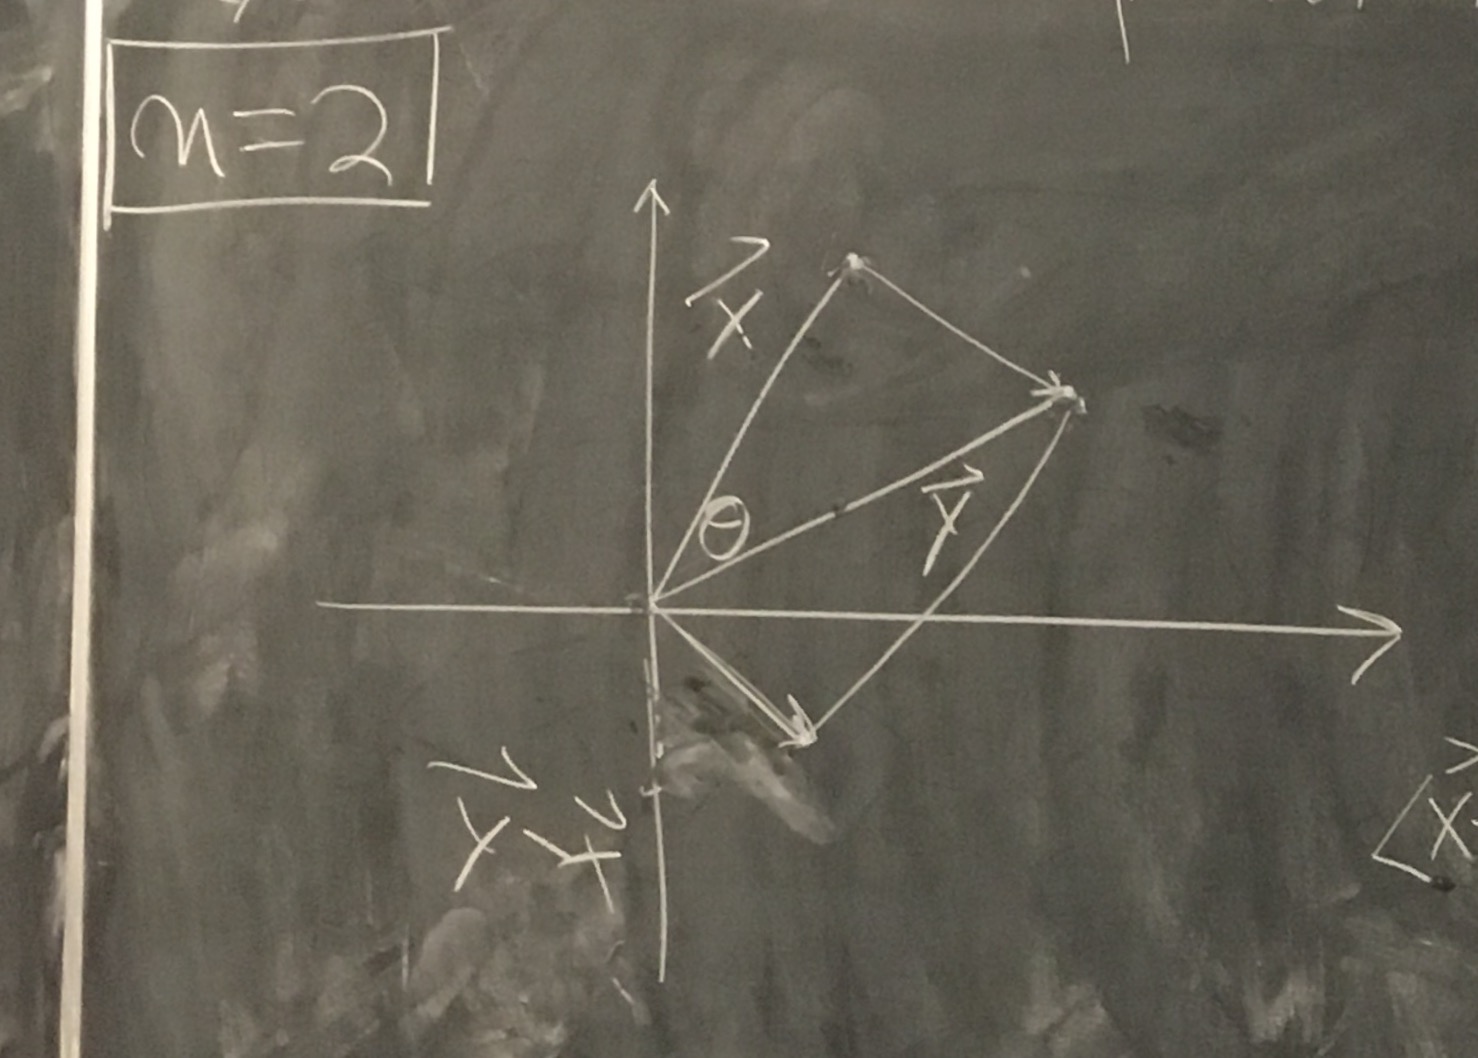 n=2
x⃗
θ
y⃗
y⃗-x⃗
<x⃗